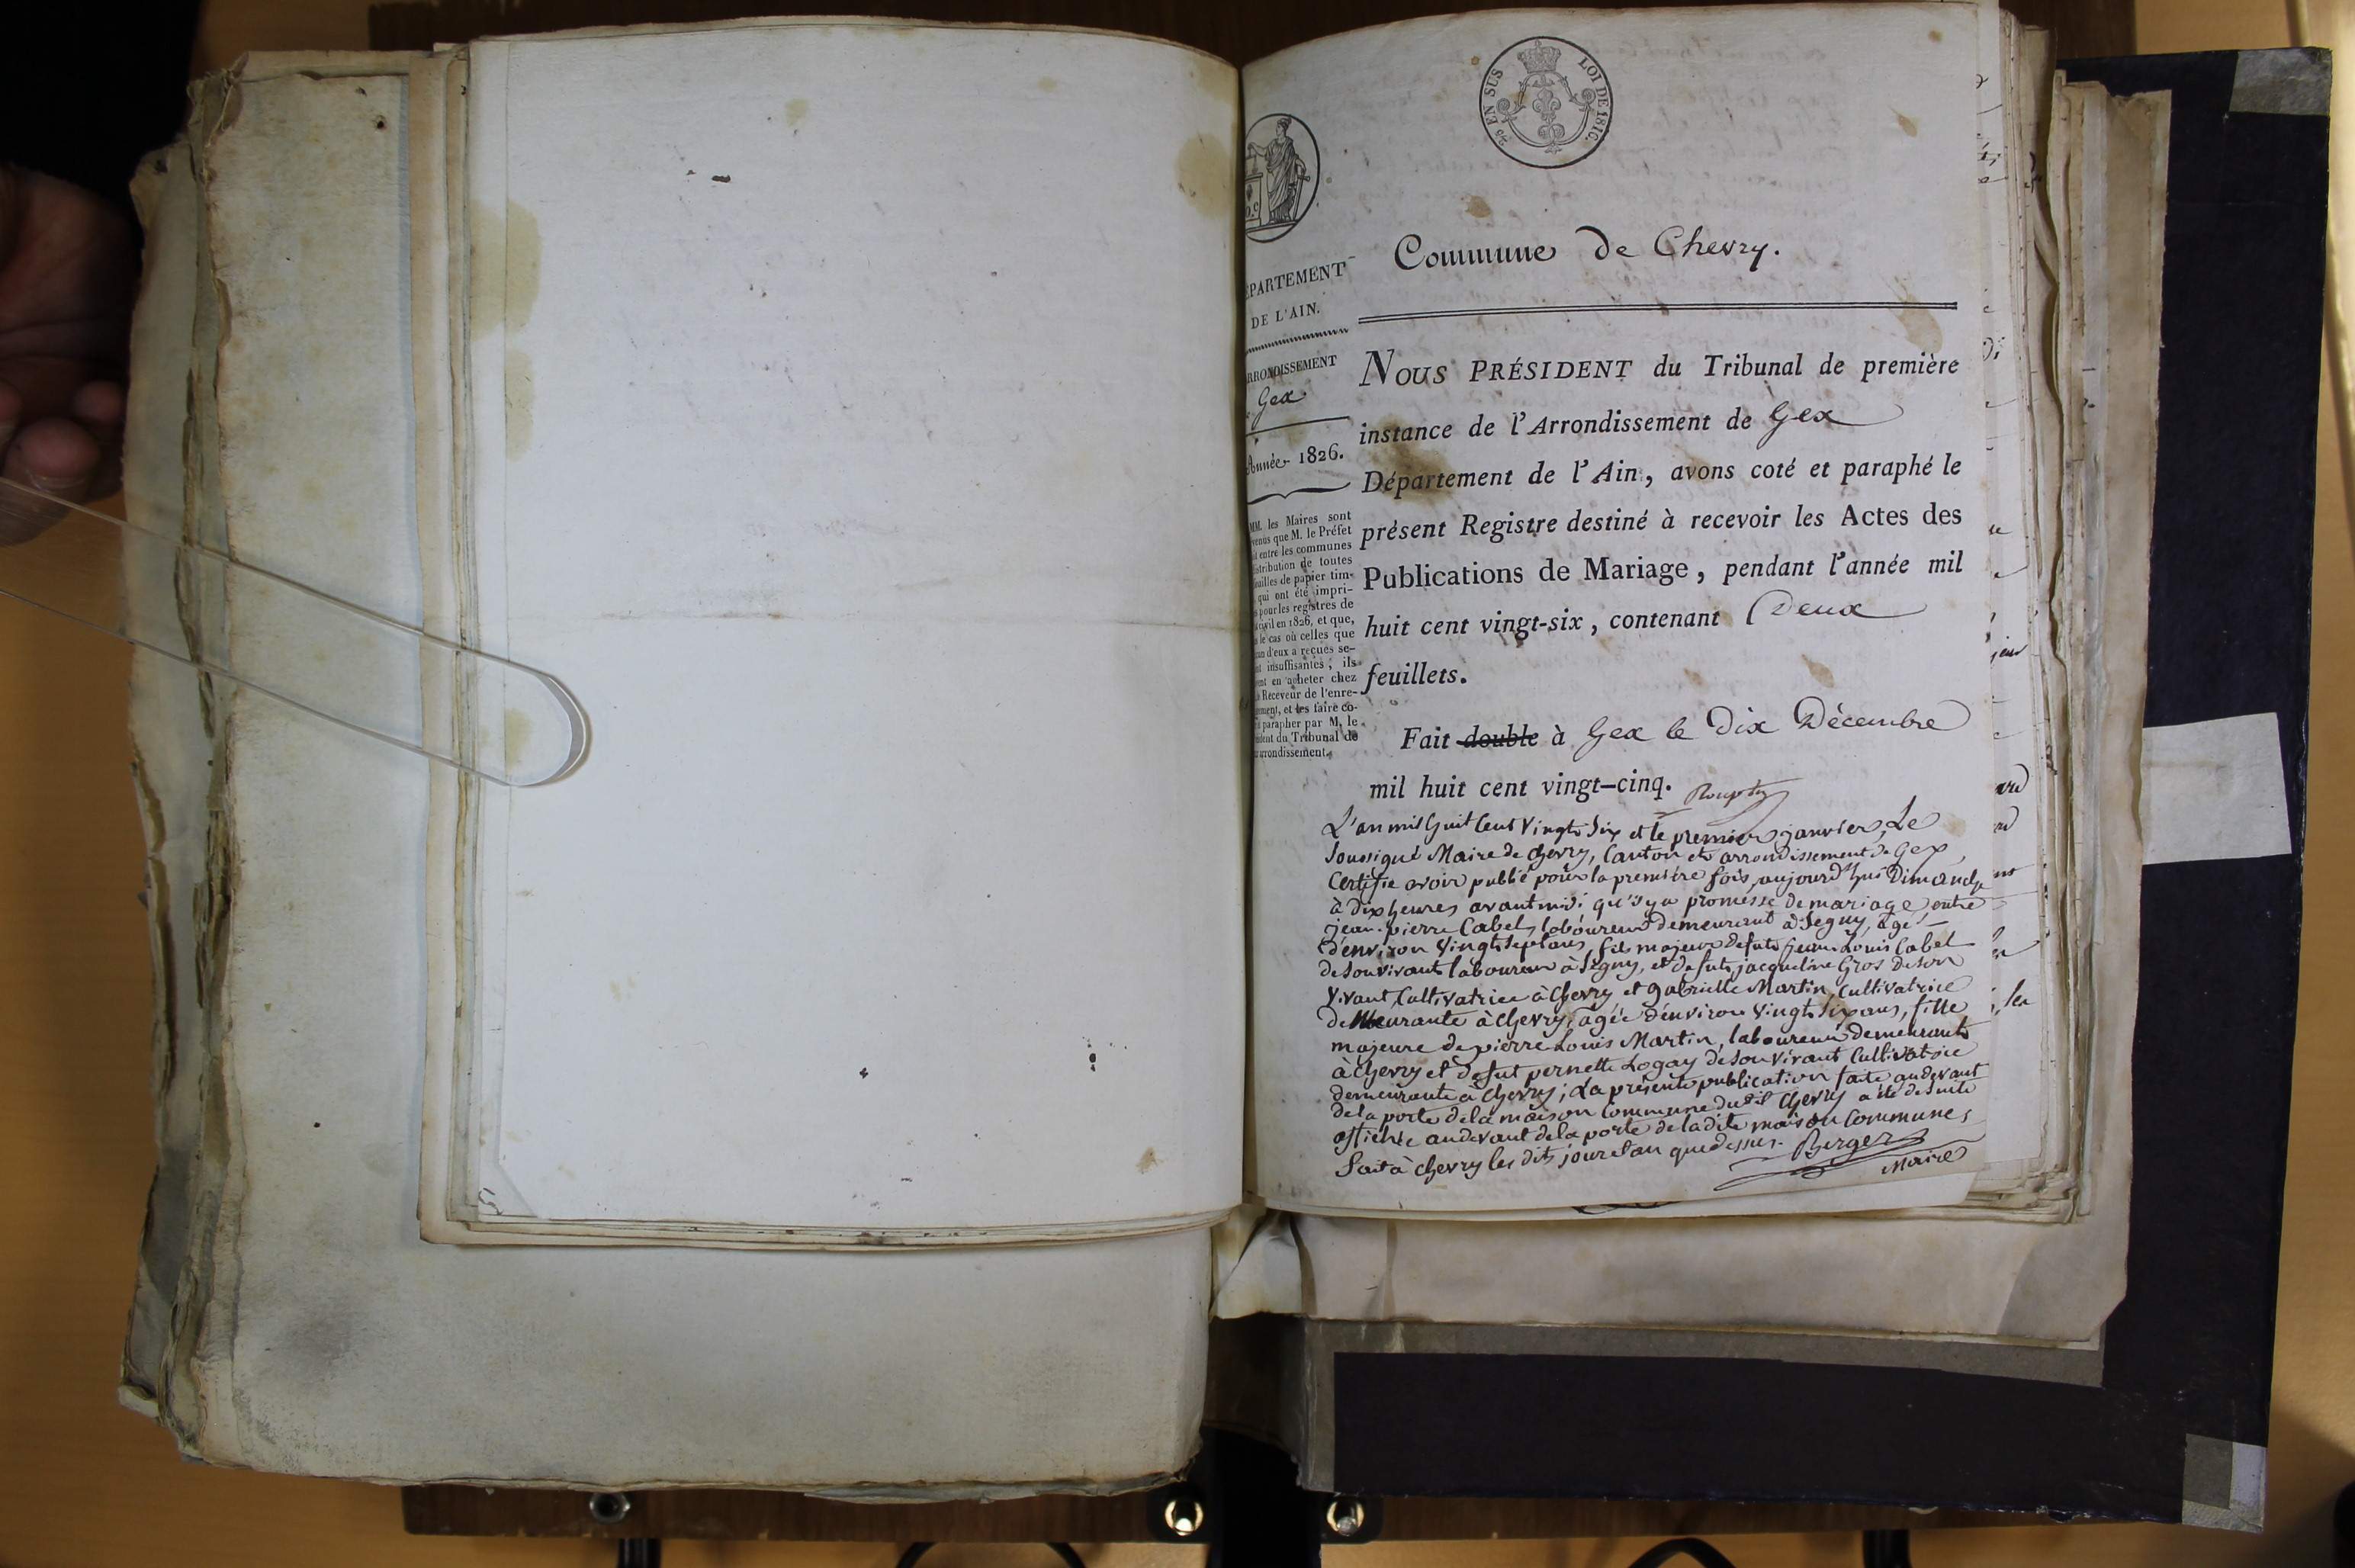 EN SUS
LOI DE 1816.
Commune de Chevry.
ÉPARTEMENT
DE L'AIN.
RRONDISSEMENT
Gex
Année 1826.
MM. les Maires sont
venus que M. le Préfet
entre les communes
stribution de toutes
euilles de papier tim-
qui ont été impri-
pour les registres de
civil en 1826, et que,
le cas où celles que
cun d'eux a reçues se-
nt insuffisantes, ils
en acheter chez
Receveur de l'enre-
ment, et les faire co-
parapher par M. le
ident du Tribunal de
arrondissement.
NOUS PRÉSIDENT du Tribunal de première
instance de l'Arrondissement de Gex
Département de l'Ain, avons coté et paraphé le
présent Registre destiné à recevoir les Actes des
Publications de Mariage, pendant l'année mil
huit cent vingt-six, contenant Deux
feuillets.
Fait double à Gex le Dix Décembre
mil huit cent vingt-cinq.
L'an mil huit Cent Vingt Six et le premier janvier, Le
Soussigné Maire de chevry, Canton et arrondissement de Gex,
Certifie avoir publié pour la première fois, aujourd'hui Dimanche
à dix heures avant midi qu'il y a promesse de mariage entre
jean-pierre Cabel, laboureur demeurant à Segny, agé
d'environ Vingt Sept ans, fils majeur de fut jean Louis Cabel
de Son vivant laboureur à Segny, et de fut jacqueline Gros de son
Vivant Cultivatrice à Chevry et gabrielle Martin, Cultivatrice
demeurante à Chevry, agée d'environ Vingt Six ans, fille
majeure de pierre Louis Martin, laboureur demeurant
à chevry et de fut pernette Logay de son vivant Cultivatrice
demeurante à chevry; La présente publication faite au devant
de la porte de la maison Commune dudit Chevry a été de Suite
affichée au devant de la porte de la dite maison Commune,
Fait à chevry les dits jour et an que dessus. Berger
Maire